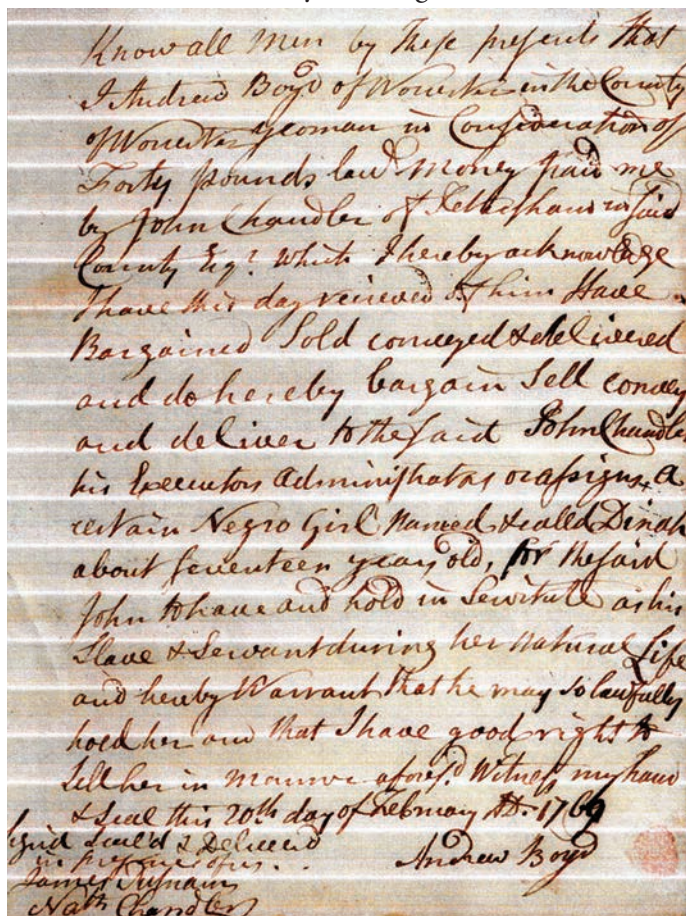 Know all men by These presents That
I Andrew Boyd of Worcester in the County
of Worcester yeoman in Consideration of
Forty pounds law.l money paid me
by John Chandler of Petersham in said
County Esq.r which I hereby acknowledge
I have this day received of him Have
Bargained Sold conveyed & delivered
and do hereby bargain Sell convey
and deliver to the said John Chandler
his Executors Administrators or assigns, a
certain Negro Girl Named & called Dinah
about seventeen years old, for the said
John to have and hold in Servitude as his
Slave & Servant during her natural Life
and hereby Warrant that he may so lawfully
hold her and that I have good right to
Sell her in manner afores.d Witness my hand
& Seal this 20th day of February AD. 1769
Sign'd Seal'd & Delivered
in presence of us
Andrew Boyd
James Putnam
Nath. Chandler